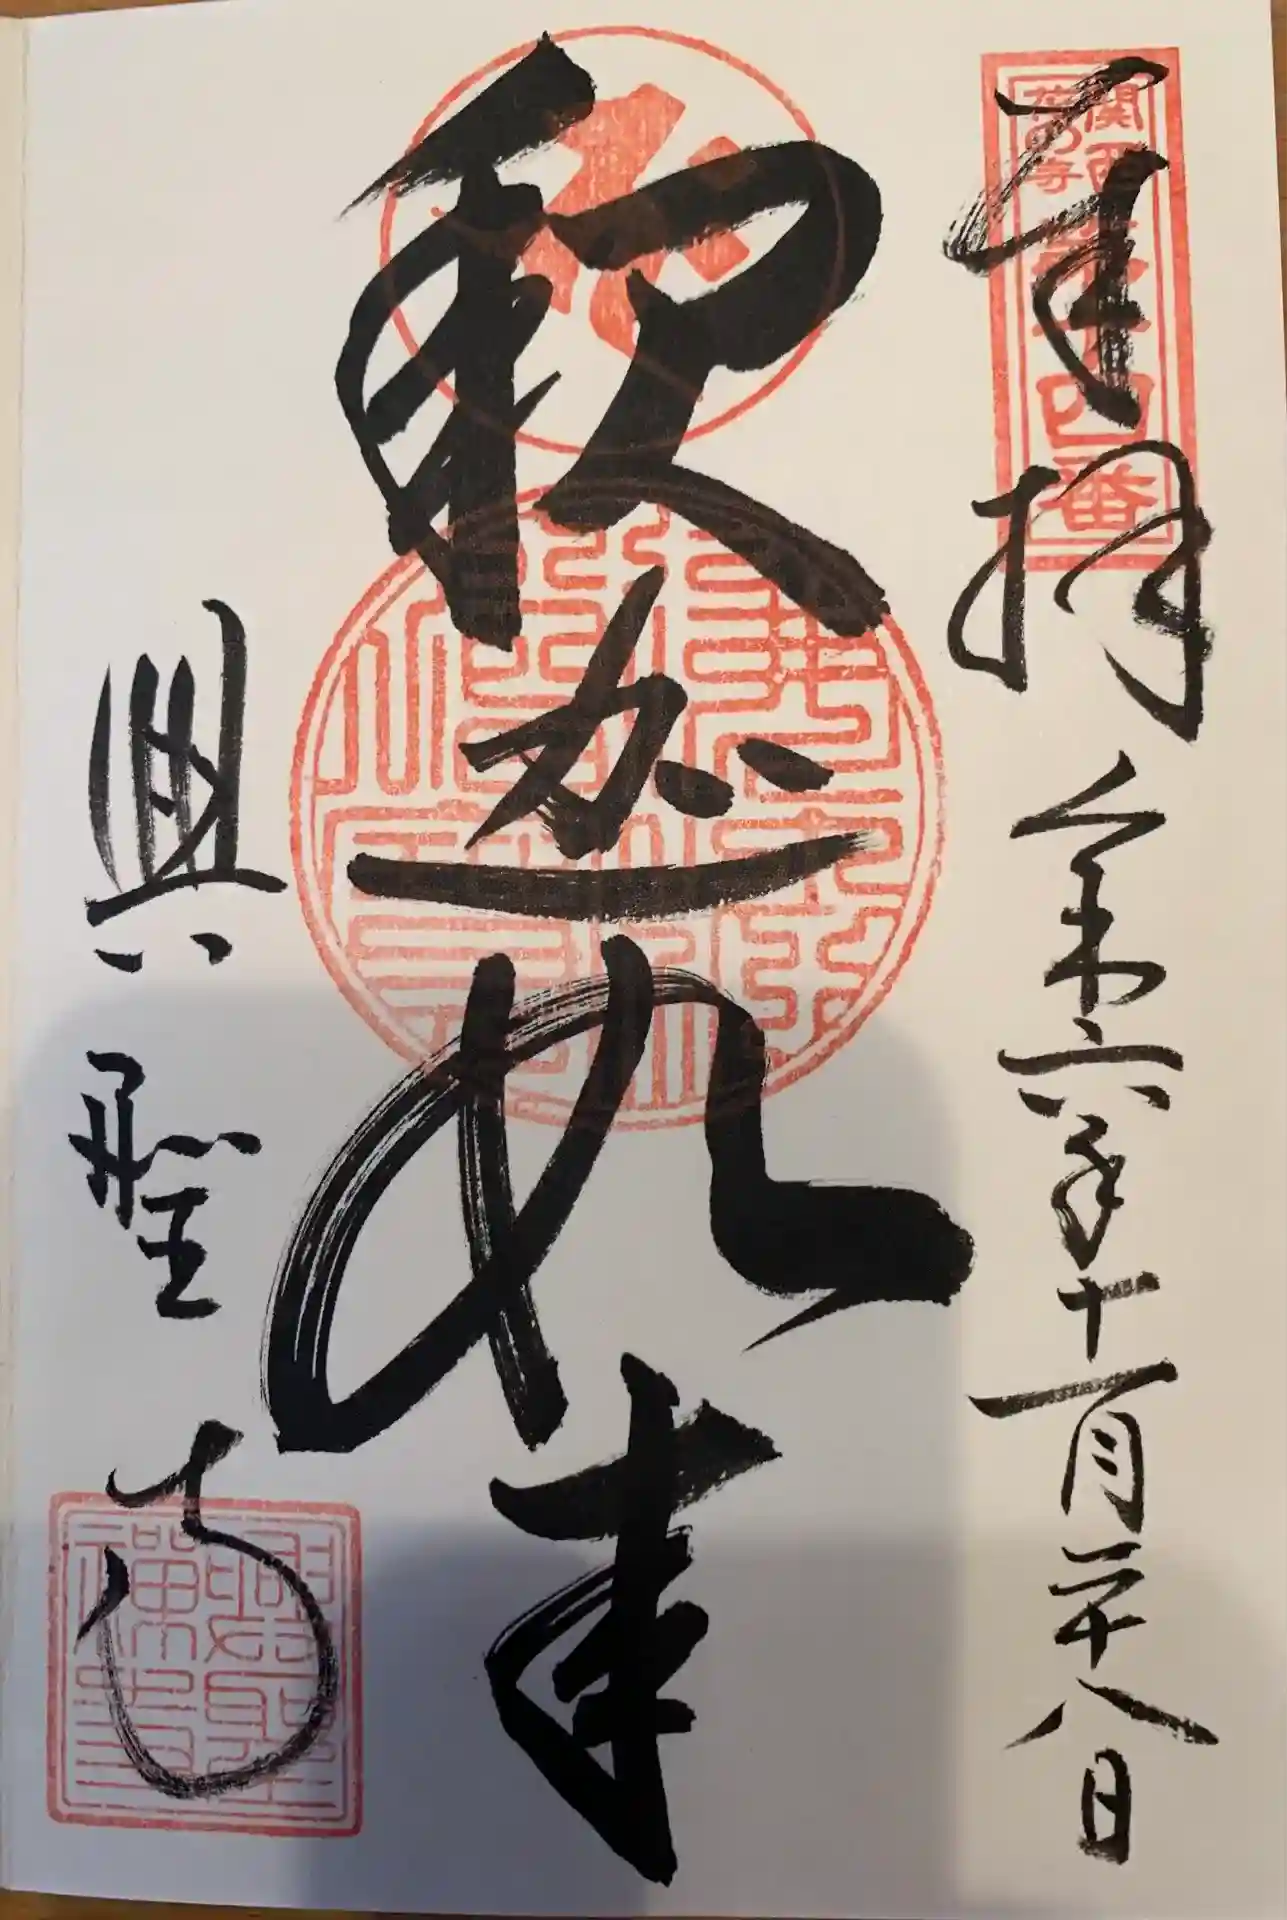 関西
花の寺
第十四番
奉拝 令和六年十一月二十八日
釈迦如来
興聖寺
興聖
禅寺